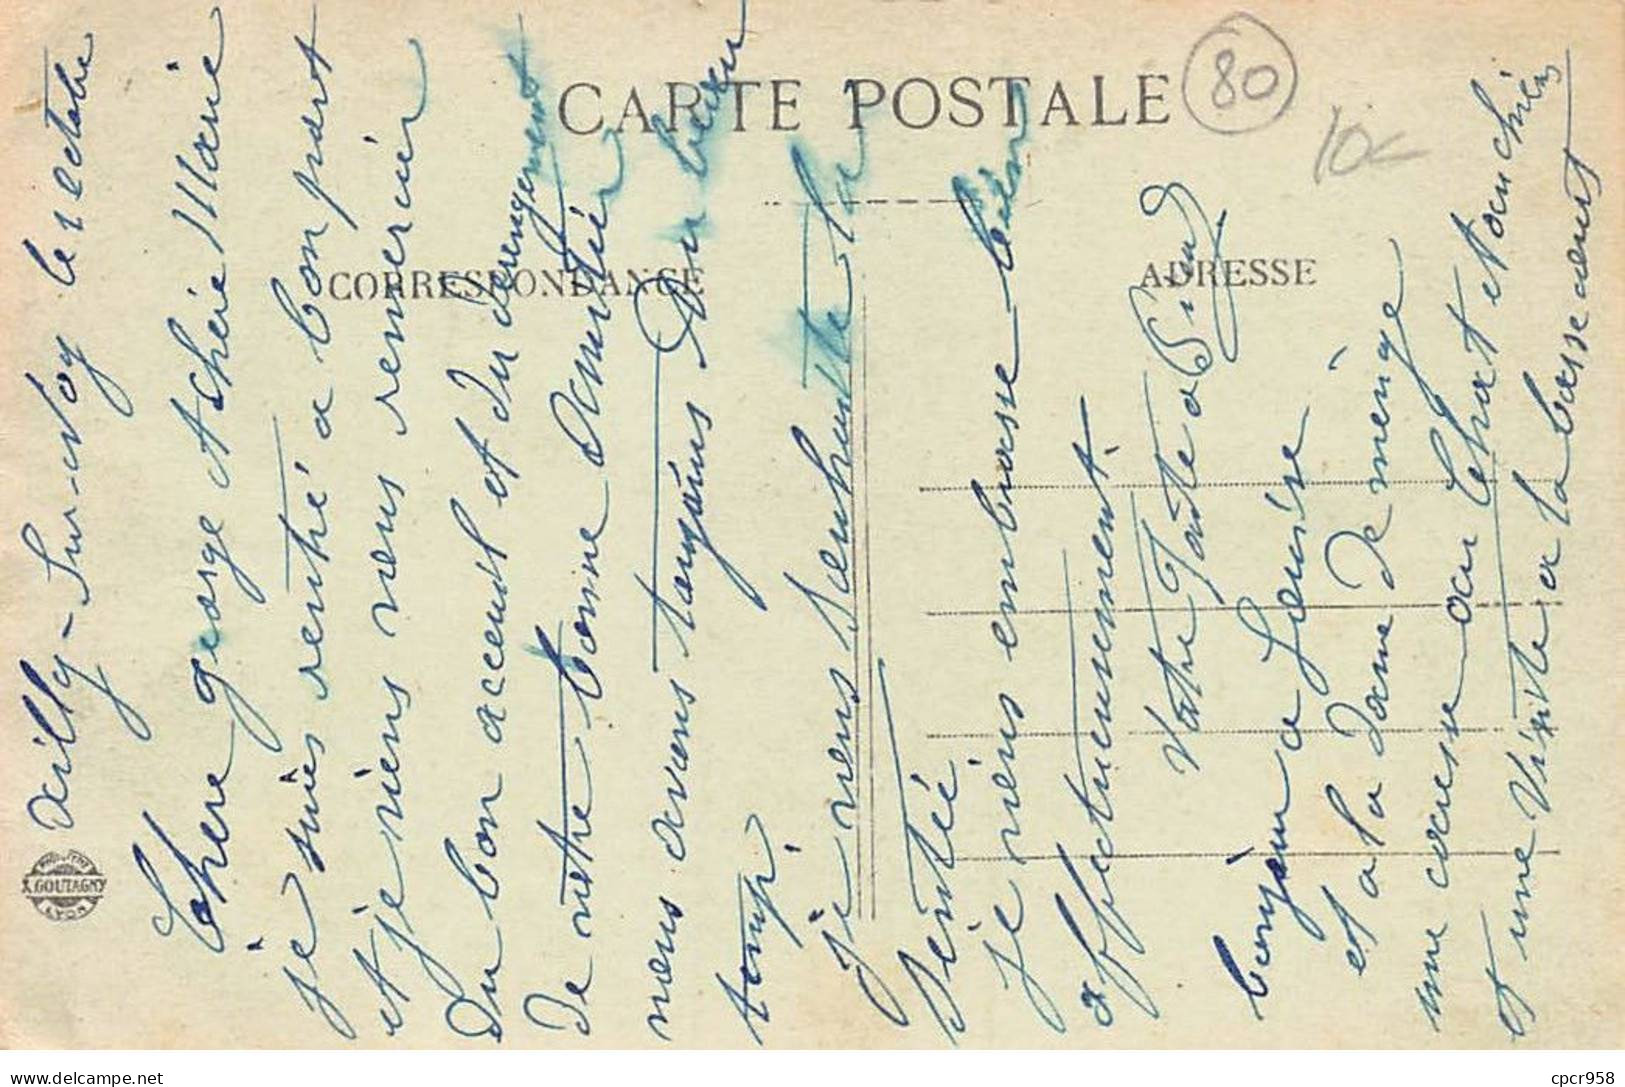 CARTE POSTALE
80
10€
CORRESPONDANCE
ADRESSE
PHOTOTYPIE
X GOUTAGNY
LYON
ailly-Sur-Noy le 1 Octobre
Chere george Acherie Marie
je suies rentré a bon part
et je viens vous remercier
du bon acceuil et du derengement
De votre bonne Amitiér
vous avons tougours Du beau
tamp.
je vous Souhuaite la
Sentée
je viens embrasse bien
affectueusement.
Votre Tante a
bonjour a Louise
et a la Dame de menge
une caresse au Chat et au chien
et une Visite a la basse court
cpcr958